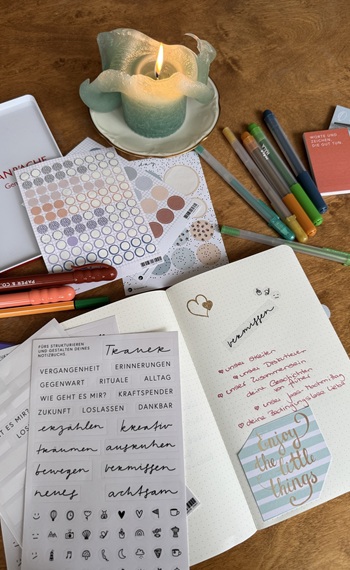 WORTE UND
ZEICHEN,
DIE GUT TUN
PAPER CO
FÜRS STRUKTURIEREN
UND GESTALTEN DEINES
NOTIZBUCHS
Trauer
VERGANGENHEIT ERINNERUNGEN
GEGENWART RITUALE ALLTAG
WIE GEHT ES MIR? KRAFTSPENDER
ZUKUNFT LOSLASSEN DANKBAR
erzählen kreativ
träumen ausruhen
bewegen vermissen
neues achtsam
vermissen
unser
unser
unser Zusammensein
deine Geschichten
von früher
unser
deine bedingungslose Liebe
Enjoy
the little
things